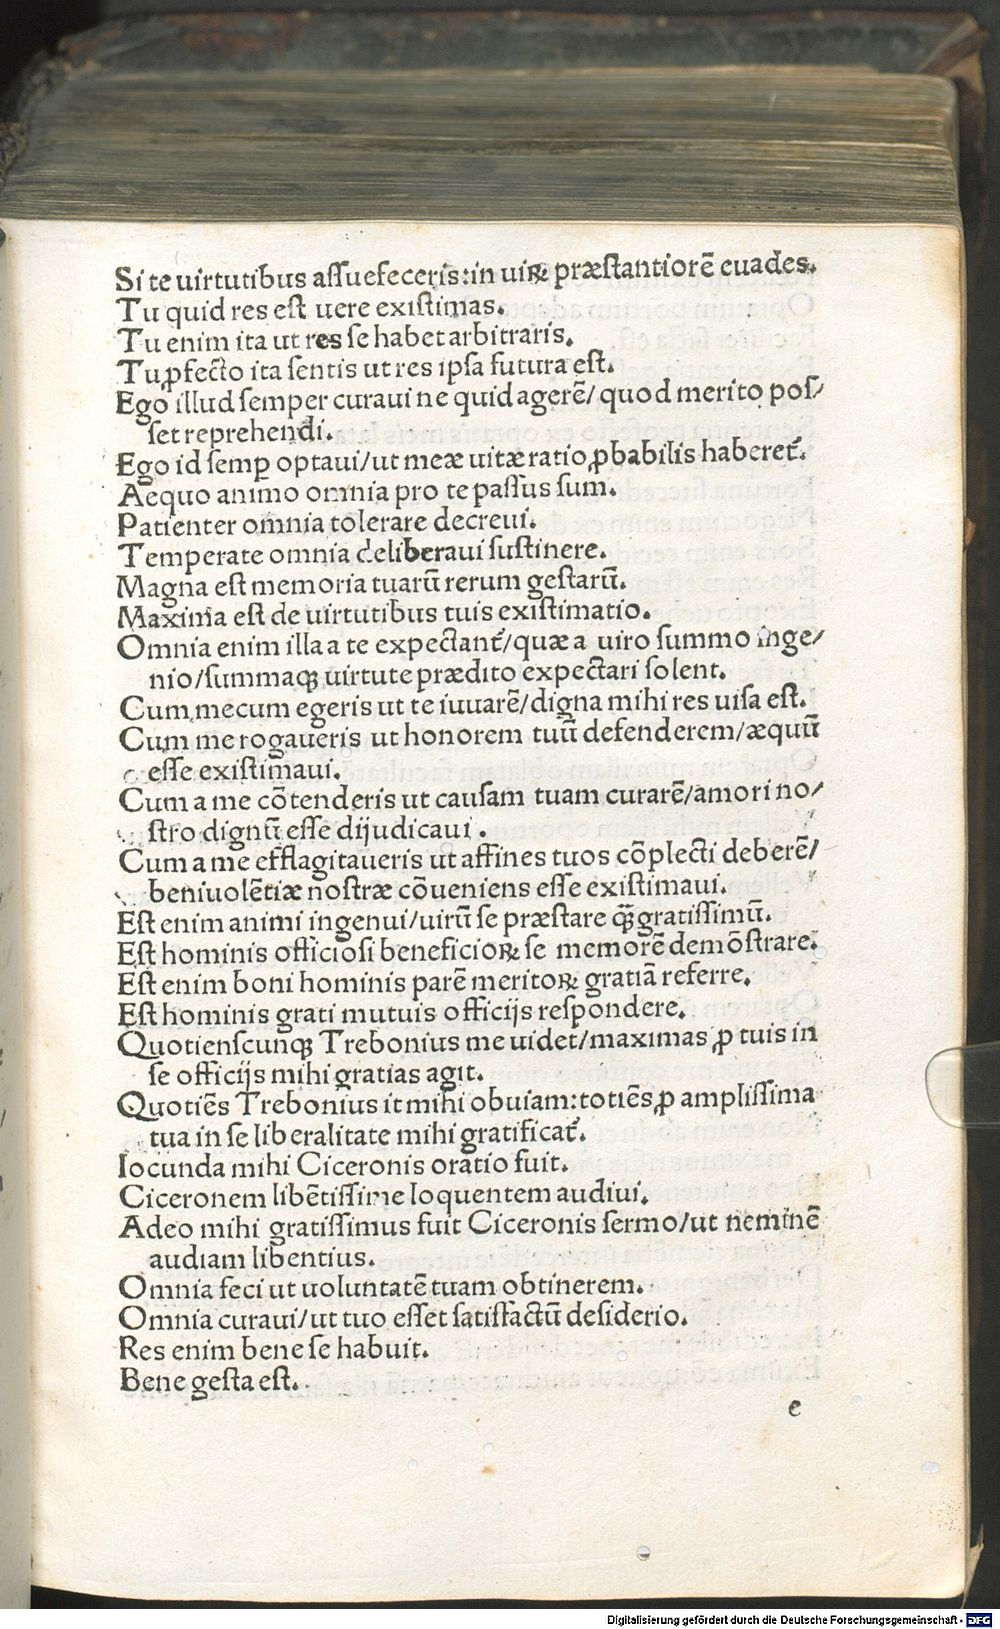 Si te uirtutibus aſſuefeceris:in uiꝝ præſtantiorē euades.
Tu quid res eſt uere exiſtimas.
Tu enim ita ut res ſe habet arbitraris.
Tu ꝓfecto ita ſentis ut res ipſa futura eſt.
Ego illud ſemper curaui ne quid agerē/ quod merito poſ/
ſet reprehendi.
Ego id ſemꝑ optaui/ut meæ uitæ ratio ꝓbabilis haberet᷑.
Aequo animo omnia pro te paſſus ſum.
Patienter omnia tolerare decreui.
Temperate omnia deliberaui ſuſtinere.
Magna eſt memoria tuarū rerum geſtarū.
Maxima eſt de uirtutibus tuis exiſtimatio.
Omnia enim illa a te expectant᷑/quæ a uiro ſummo inge/
nio/ſummaqꝫ uirtute prædito expectari ſolent.
Cum mecum egeris ut te iuuarē/digna mihi res uiſa eſt.
Cum me rogaueris ut honorem tuū defenderem/æquū
eſſe exiſtimaui.
Cum a me cōtenderis ut cauſam tuam curarē/amori no/
ſtro dignū eſſe dijudicaui.
Cum a me efflagitaueris ut affines tuos cōplecti deberē/
beniuolētiæ noſtræ cōueniens eſſe exiſtimaui.
Eſt enim animi ingenui/uirū ſe præſtare qꝫ̄ gratiſſimū.
Eſt hominis officioſi beneficioꝝ ſe memorē demōſtrare.
Eſt enim boni hominis parē meritoꝝ gratiā referre.
Eſt hominis grati mutuis officijs reſpondere.
Quotienſcunqꝫ Trebonius me uidet/maximas ꝓ tuis in
ſe officijs mihi gratias agit.
Quotiēs Trebonius it mihi obuiam:totiēs ꝓ ampliſſima
tua in ſe liberalitate mihi gratificat᷑.
Iocunda mihi Ciceronis oratio fuit.
Ciceronem libētiſſime loquentem audiui.
Adeo mihi gratiſſimus fuit Ciceronis ſermo/ut neminē
audiam libentius.
Omnia feci ut uoluntatē tuam obtinerem.
Omnia curaui/ut tuo eſſet ſatiſfactū deſiderio.
Res enim bene ſe habuit.
Bene geſta eſt.
e
Digitalisierung gefördert durch die Deutsche Forschungsgemeinschaft - DFG